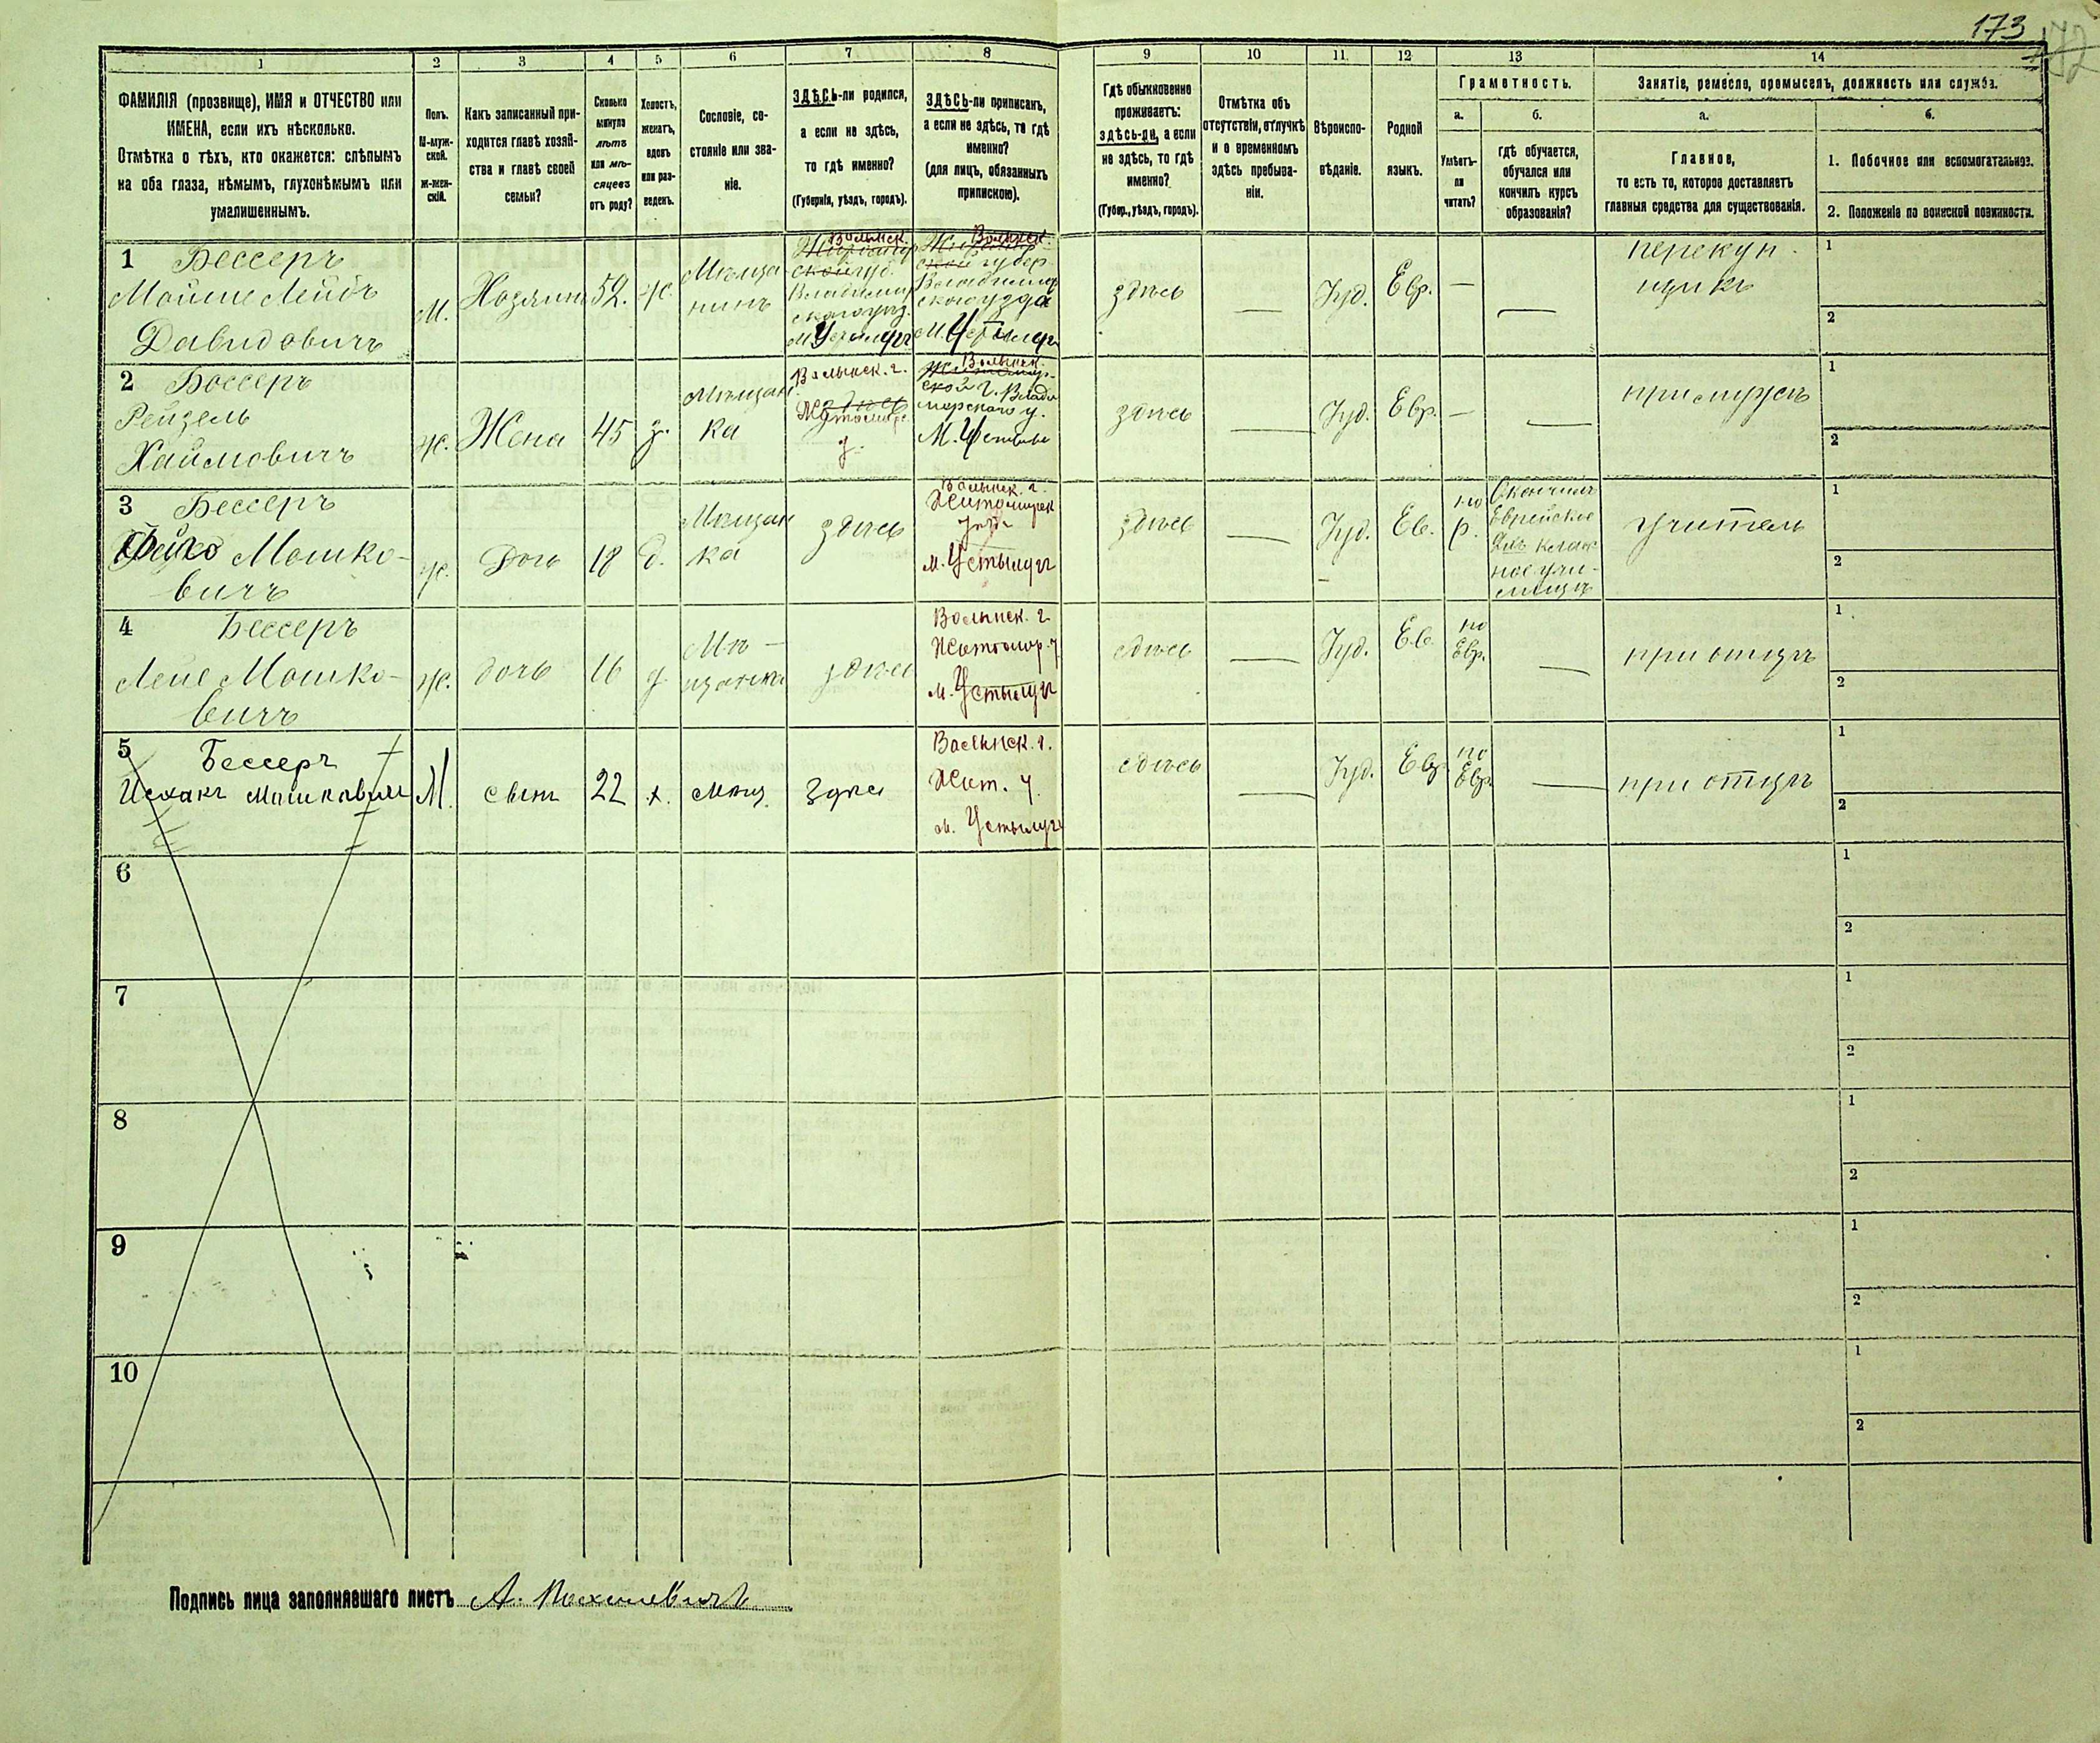 173
1
2
3
4
5
6
7
8
9
10
11
12
13
14
ФАМИЛІЯ (прозвище), ИМЯ и ОТЧЕСТВО или
ИМЕНА, если ихъ нѣсколько.
Отмѣтка о тѣхъ, кто окажется: слѣпымъ
на оба глаза, нѣмымъ, глухонѣмымъ или
умалишеннымъ.
Полъ.
М-муж-
ской.
Ж-жен-
скій.
Какъ записанный при-
ходится главѣ хозяй-
ства и главѣ своей
семьи?
Сколько
минуло
лѣтъ
или мѣ-
сяцевъ
отъ роду?
Холостъ,
женатъ,
вдовъ
или раз-
веденъ.
Сословіе, со-
стояніе или зва-
ніе.
ЗДѢСЬ-ли родился,
а если не здѣсь,
то гдѣ именно?
(Губернія, уѣздъ, городъ).
ЗДѢСЬ-ли приписанъ,
а если не здѣсь, то гдѣ
именно?
(для лицъ, обязанныхъ
припискою).
Гдѣ обыкновенно
проживаетъ:
здѣсь-ли, а если
не здѣсь, то гдѣ
именно?
(Губер., уѣздъ, городъ).
Отмѣтка объ
отсутствіи, отлучкѣ
и о временномъ
здѣсь пребыва-
ніи.
Вѣроиспо-
вѣданіе.
Родной
языкъ.
Грамотность.
а.
Умѣетъ-
ли
читать?
б.
гдѣ обучается,
обучался или
кончилъ курсъ
образованія?
Занятіе, ремесло, промыселъ, должность или служба.
а.
Главное,
то есть то, которое доставляетъ
главныя средства для существованія.
б.
1. Побочное или вспомогательное.
2. Положеніе по воинской повинности.
1 Бессеръ
Мошие Лейбъ
Давидовичъ
М.
Хозяинъ
52.
ж.
Мѣща
нинъ
Волынск.
Владимир
скаго уѣз.
м. Устилугъ
Волынск.
губер
Владимир
скаго уѣзда
М. Устилуг
здѣсь
—
Іуд.
Евр.
—
—
перекуп
щикъ
1
2
2 Бессеръ
Рейзель
Хаимовичъ
ж.
Жена
45
з.
Мѣщан
ка
Волынск. г.
Житомирс
у.
Волынск.
ской г. Влади
мирскаго у.
М. Устил
здѣсь
—
Іуд.
Евр.
—
—
при мужѣ
1
2
3 Бессеръ
Мошко-
вичъ
ж.
Дочь
18
д.
Мѣщан
ка
здѣсь
Волынск. г.
Житомирск
уѣзд
м. Устылугъ
здѣсь
—
Іуд.
Ев.
по
р.
Окончила
Еврейское
класс
ное учи-
лище
учитель
1
2
4 Бессеръ
Лейе Мошко-
вичъ
ж.
дочь
16
д.
Мѣ-
щанка
здѣсь
Волынск. г.
Житомир. у
м. Устылугъ
здѣсь
—
Іуд.
Ев.
по
Евр.
—
при отцѣ
1
2
5 Бессеръ
Исхакъ Мошковичъ
М.
сынъ
22
х.
мѣщ.
здѣсь
Волынск. г.
Жит. у.
м. Устылугъ
здѣсь
—
Іуд.
Евр.
по
Евр.
—
при отцѣ
1
2
6
1
2
7
1
2
8
1
2
9
1
2
10
1
2
Подпись лица заполнявшаго листъ А.